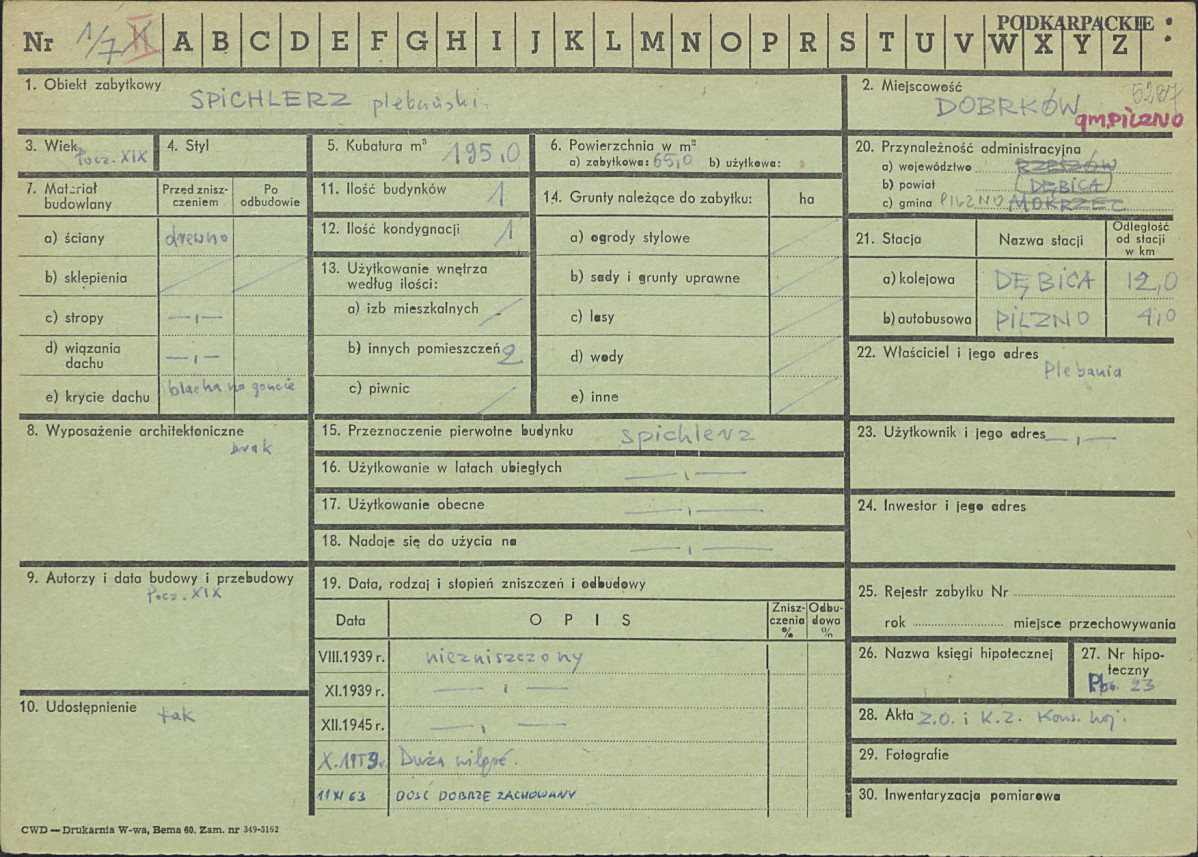 PODKARPACKIE
Nr 1/7 II A B C D E F G H I J K L M N O P R S T U V W X Y Z
1. Obiekt zabytkowy
SPICHLERZ plebański.
2. Miejscowość
5287
DOBRKÓW
gm. PILZNO
3. Wiek
Pocz. XIX
4. Styl
5. Kubatura m³ 195,0
6. Powierzchnia w m²
a) zabytkowa: 65,0 b) użytkowa:
20. Przynależność administracyjna
a) województwo RZESZÓW
b) powiat DĘBICA
c) gmina PILZNO MOKRZEC
7. Materiał budowlany
Przed znisz-
czeniem
Po
odbudowie
a) ściany drewno
b) sklepienia
c) stropy —„—
d) wiązania
dachu —„—
e) krycie dachu blacha na goncie
11. Ilość budynków 1
12. Ilość kondygnacji 1
13. Użytkowanie wnętrza
według ilości:
a) izb mieszkalnych
b) innych pomieszczeń 2
c) piwnic
14. Grunty należące do zabytku: ha
a) ogrody stylowe
b) sady i grunty uprawne
c) lasy
d) wody
e) inne
21. Stacja Nazwa stacji
Odległość
od stacji
w km
a) kolejowa DĘBICA 12,0
b) autobusowa PILZNO 4,0
22. Właściciel i jego adres
Plebania
8. Wyposażenie architektoniczne
brak
15. Przeznaczenie pierwotne budynku spichlerz
16. Użytkowanie w latach ubiegłych —„—
17. Użytkowanie obecne —„—
18. Nadaje się do użycia na —„—
23. Użytkownik i jego adres —„—
24. Inwestor i jego adres
9. Autorzy i data budowy i przebudowy
Pocz. XIX
19. Data, rodzaj i stopień zniszczeń i odbudowy
Data OPIS
Znisz-
czenia
%
Odbu-
dowa
%
VIII.1939 r. niezniszczony
XI.1939 r. —„—
XII.1945 r. —„—
X.1959 r. Duża wilgoć.
11 XI 63 DOŚĆ DOBRZE ZACHOWANY
25. Rejestr zabytku Nr
rok miejsce przechowywania
26. Nazwa księgi hipotecznej
27. Nr hipo-
teczny
23
10. Udostępnienie tak
28. Akta Z.O. i K.Z. Kons. woj.
29. Fotografie
30. Inwentaryzacja pomiarowa
CWD — Drukarnia W-wa, Bema 60. Zam. nr 349-5162